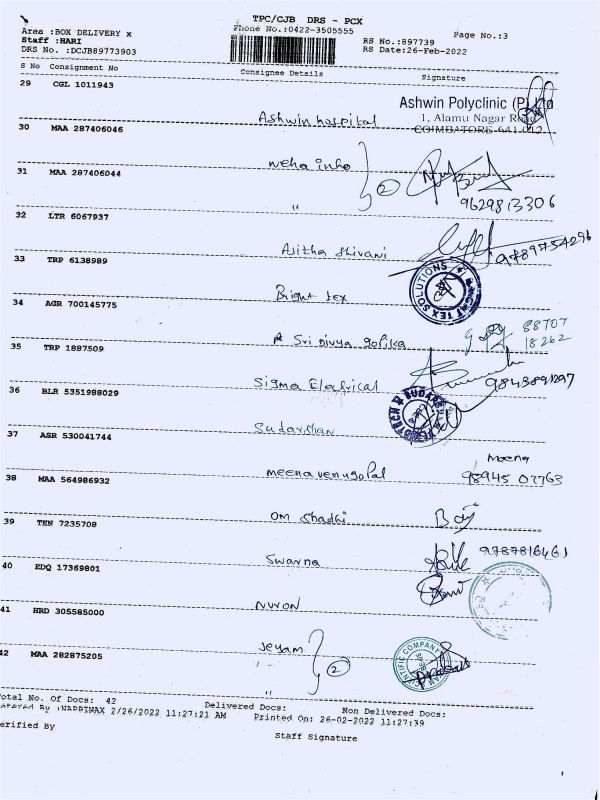 TPC/CJB DRS - PCX
Phone No.:0422-3505555
Page No.:3
Area :BOX DELIVERY x
Staff :HARI
DRS No. :DCJB89773903
RS No.:897739
RS Date:26-Feb-2022
S No Consignment No Consignee Details Signature
29 CGL 1011943 Ashwin hospital
Ashwin Polyclinic (P) Ltd
1, Alamu Nagar Road
COIMBATORE-641 012
30 MAA 287406046 neha inho
31 MAA 287406044 " 2
9629813306
32 LTR 6067937 Ajitha Shivani 9789754296
33 TRP 6138989 Bright tex
TEX SOLUTIONS
34 AGR 700145775 Sri Divya gopika 88707
18262
35 TRP 1887509 Sigma Electrical 9843891297
36 BLR 5351988029 Sudarshan
37 ASR 530041744 meena venugopal Meena
98945 07763
38 MAA 564986932 Om Shadhi
39 TEN 7235708 Swarna 9787816461
40 EDQ 17369801 Nuron
41 HRD 305585000 Jeyam
42 MAA 282875205 " 2
Total No. Of Docs: 42 Delivered Docs: Non Delivered Docs:
Entered By :NAPPINAX 2/26/2022 11:27:21 AM Printed On: 26-02-2022 11:27:39
erified By Staff Signature